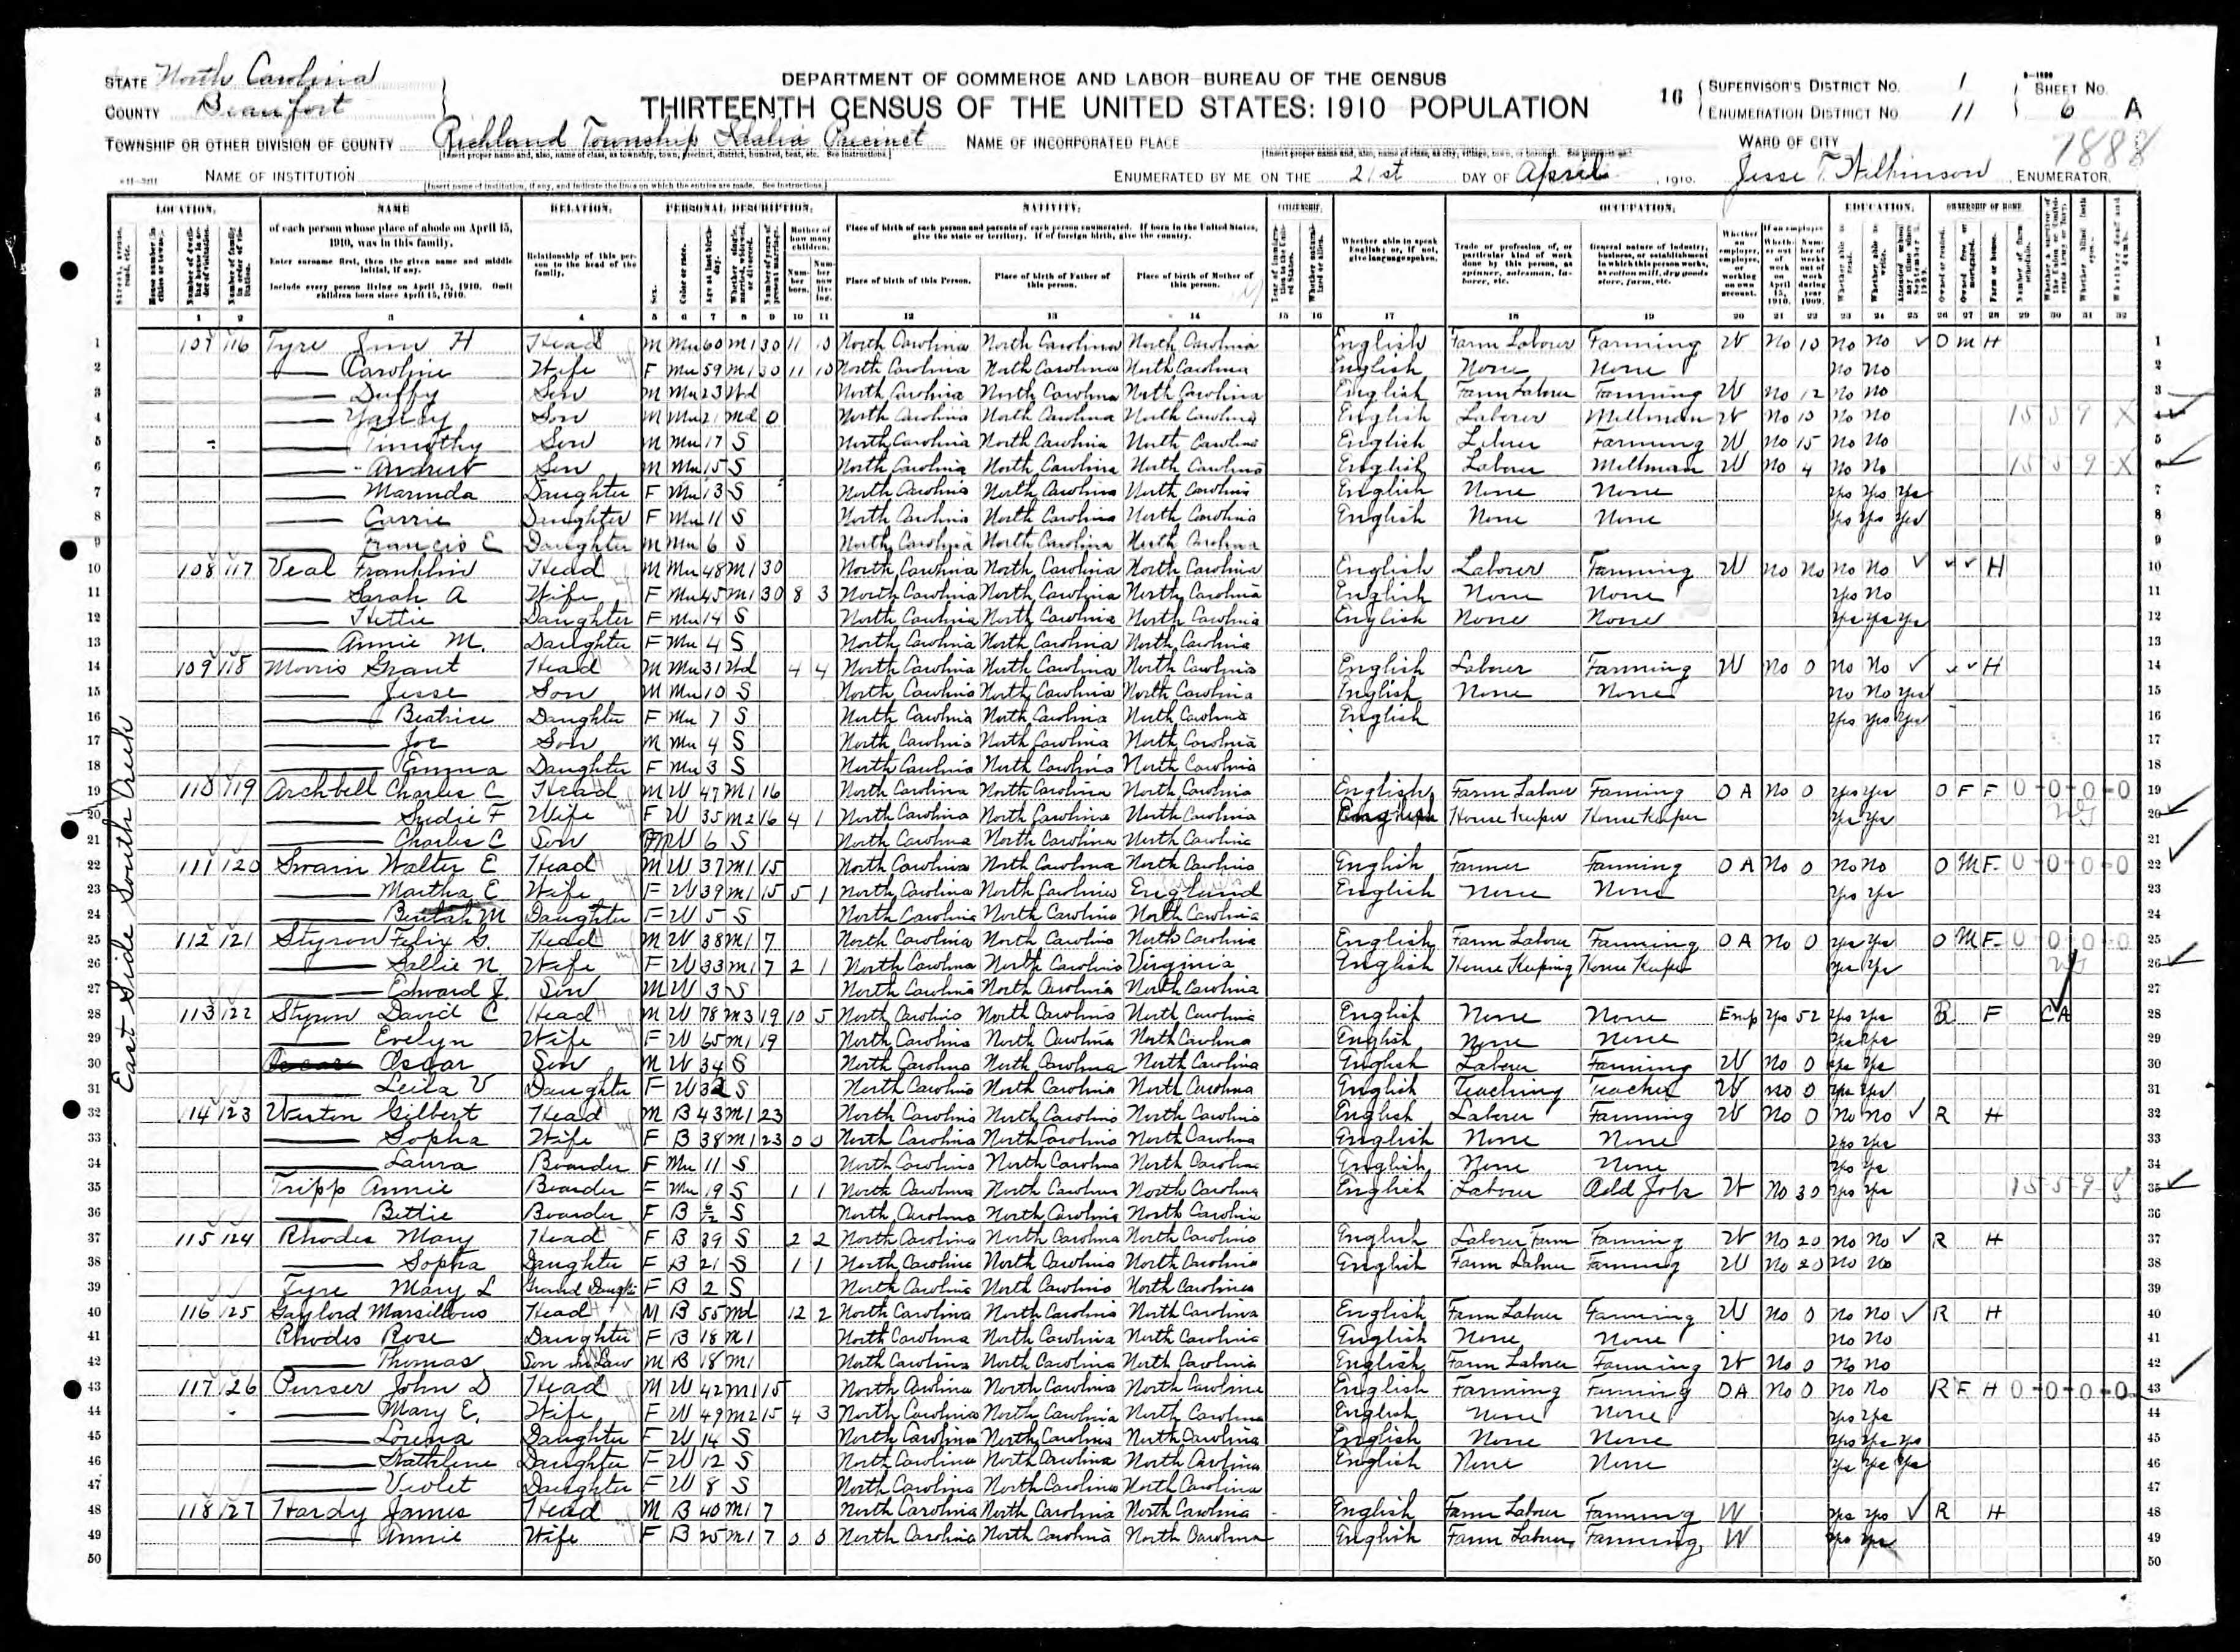 DEPARTMENT OF COMMERCE AND LABOR-BUREAU OF THE CENSUS
THIRTEENTH CENSUS OF THE UNITED STATES: 1910 POPULATION
STATE North Carolina
COUNTY Beaufort
TOWNSHIP OR OTHER DIVISION OF COUNTY Richland Township Idalia Precinct
NAME OF INCORPORATED PLACE
NAME OF INSTITUTION
16 SUPERVISOR'S DISTRICT NO. 1
ENUMERATION DISTRICT NO. 11
SHEET NO. 6 A
WARD OF CITY
7888
ENUMERATED BY ME ON THE 21st DAY OF April, 1910. Jesse T. Wilkinson, ENUMERATOR.
LOCATION. NAME RELATION. PERSONAL DESCRIPTION. NATIVITY. CITIZENSHIP. OCCUPATION. EDUCATION. OWNERSHIP OF HOME.
of each person whose place of abode on April 15, 1910, was in this family.
Enter surname first, then the given name and middle initial, if any.
Include every person living on April 15, 1910. Omit children born since April 15, 1910.
Relationship of this person to the head of the family.
Place of birth of each person and parents of each person enumerated. If born in the United States, give the state or territory. If of foreign birth, give the country.
Place of birth of this Person. Place of birth of Father of this person. Place of birth of Mother of this person.
Whether able to speak English; or, if not, give language spoken.
1 2 3 4 5 6 7 8 9 10 11 12 13 14 15 16 17 18 19 20 21 22 23 24 25 26 27 28 29 30 31 32
East Side South Creek
1 107 116 Tyre Jim H Head M Mu 60 M1 30 11 10 North Carolina North Carolina North Carolina English Farm Laborer Farming W No 10 No No O M H 1
2 Caroline Wife F Mu 59 M1 30 11 10 North Carolina North Carolina North Carolina English None None No No 2
3 Duffy Son M Mu 23 Wd North Carolina North Carolina North Carolina English Farm Laborer Farming W No 12 No No 3
4 Yancy Son M Mu 21 Md 0 North Carolina North Carolina North Carolina English Laborer Millman W No 10 No No 1559 X 4
5 Timothy Son M Mu 17 S North Carolina North Carolina North Carolina English Laborer Farming W No 15 No No 5
6 Andrew Son M Mu 15 S North Carolina North Carolina North Carolina English Laborer Millman W No 4 No No 1559 X 6
7 Marinda Daughter F Mu 13 S North Carolina North Carolina North Carolina English None None Yes Yes Yes 7
8 Carrie Daughter F Mu 11 S North Carolina North Carolina North Carolina English None None Yes Yes Yes 8
9 Francis E Daughter M Mu 6 S North Carolina North Carolina North Carolina 9
10 108 117 Veal Franklin Head M Mu 48 M1 30 North Carolina North Carolina North Carolina English Laborer Farming W No No No No H 10
11 Sarah A Wife F Mu 45 M1 30 8 3 North Carolina North Carolina North Carolina English None None Yes No 11
12 Hettie Daughter F Mu 14 S North Carolina North Carolina North Carolina English None None Yes Yes Yes 12
13 Annie M. Daughter F Mu 4 S North Carolina North Carolina North Carolina 13
14 109 118 Morris Grant Head M Mu 31 Wd 4 4 North Carolina North Carolina North Carolina English Laborer Farming W No 0 No No H 14
15 Jesse Son M Mu 10 S North Carolina North Carolina North Carolina English None None No No Yes 15
16 Beatrice Daughter F Mu 7 S North Carolina North Carolina North Carolina English Yes Yes Yes 16
17 Joe Son M Mu 4 S North Carolina North Carolina North Carolina 17
18 Emma Daughter F Mu 3 S North Carolina North Carolina North Carolina 18
19 110 119 Archbell Charles C Head M W 47 M1 16 North Carolina North Carolina North Carolina English Farm Laborer Farming OA No 0 Yes Yes O F F 0-0-0-0 19
20 Sudie F Wife F W 35 M2 16 4 1 North Carolina North Carolina North Carolina English House Keeper House Keeper Yes Yes 20
21 Charles C Son M W 6 S North Carolina North Carolina North Carolina 21
22 111 120 Swain Walter E Head M W 37 M1 15 North Carolina North Carolina North Carolina English Farmer Farming OA No 0 No No O M F 0-0-0-0 22
23 Martha E Wife F W 39 M1 15 5 1 North Carolina North Carolina England English None None Yes Yes 23
24 Beulah M Daughter F W 5 S North Carolina North Carolina North Carolina 24
25 112 121 Styron Felix G. Head M W 38 M1 7 North Carolina North Carolina North Carolina English Farm Laborer Farming OA No 0 Yes Yes O M F 0-0-0-0 25
26 Sallie N. Wife F W 33 M1 7 2 1 North Carolina North Carolina Virginia English House Keeping House Keeper Yes Yes 26
27 Edward J. Son M W 3 S North Carolina North Carolina North Carolina 27
28 113 122 Styron David C Head M W 78 M3 19 10 5 North Carolina North Carolina North Carolina English None None Emp Yes 52 Yes Yes R F CA 28
29 Evelyn Wife F W 65 M1 19 North Carolina North Carolina North Carolina English None None Yes Yes 29
30 Oscar Son M W 34 S North Carolina North Carolina North Carolina English Laborer Farming W No 0 Yes Yes 30
31 Leila V Daughter F W 32 S North Carolina North Carolina North Carolina English Teaching Teacher W No 0 Yes Yes 31
32 114 123 Weston Gilbert Head M B 43 M1 23 North Carolina North Carolina North Carolina English Laborer Farming W No 0 No No R H 32
33 Sopha Wife F B 38 M1 23 0 0 North Carolina North Carolina North Carolina English None None Yes Yes 33
34 Laura Boarder F Mu 11 S North Carolina North Carolina North Carolina English None None Yes Yes 34
35 Tripp Annie Boarder F Mu 19 S 1 1 North Carolina North Carolina North Carolina English Laborer Odd Job W No 30 Yes Yes 1559 35
36 Bettie Boarder F B S North Carolina North Carolina North Carolina 36
37 115 124 Rhodes Mary Head F B 39 S 2 2 North Carolina North Carolina North Carolina English Laborer Farm Farming W No 20 No No R H 37
38 Sopha Daughter F B 21 S 1 1 North Carolina North Carolina North Carolina English Farm Laborer Farming W No 20 No No 38
39 Tyre Mary L Grand Daughter F B 2 S North Carolina North Carolina North Carolina 39
40 116 125 Gaylord Head M B 55 Md 12 2 North Carolina North Carolina North Carolina English Farm Laborer Farming W No 0 No No R H 40
41 Rhodes Rose Daughter F B 18 M1 North Carolina North Carolina North Carolina English None None No No 41
42 Thomas Son in Law M B 18 M1 North Carolina North Carolina North Carolina English Farm Laborer Farming W No 0 No No 42
43 117 126 Purser John D Head M W 42 M1 15 North Carolina North Carolina North Carolina English Farming Farming OA No 0 No No R F H 0-0-0-0 43
44 Mary E. Wife F W 49 M2 15 4 3 North Carolina North Carolina North Carolina English None None Yes Yes 44
45 Lorena Daughter F W 14 S North Carolina North Carolina North Carolina English None None Yes Yes Yes 45
46 Kathleene Daughter F W 12 S North Carolina North Carolina North Carolina English None None Yes Yes Yes 46
47 Violet Daughter F W 8 S North Carolina North Carolina North Carolina 47
48 118 127 Hardy James Head M B 40 M1 7 North Carolina North Carolina North Carolina English Farm Laborer Farming W Yes Yes R H 48
49 Annie Wife F B 25 M1 7 0 0 North Carolina North Carolina North Carolina English Farm Laborer Farming W Yes Yes 49
50 50